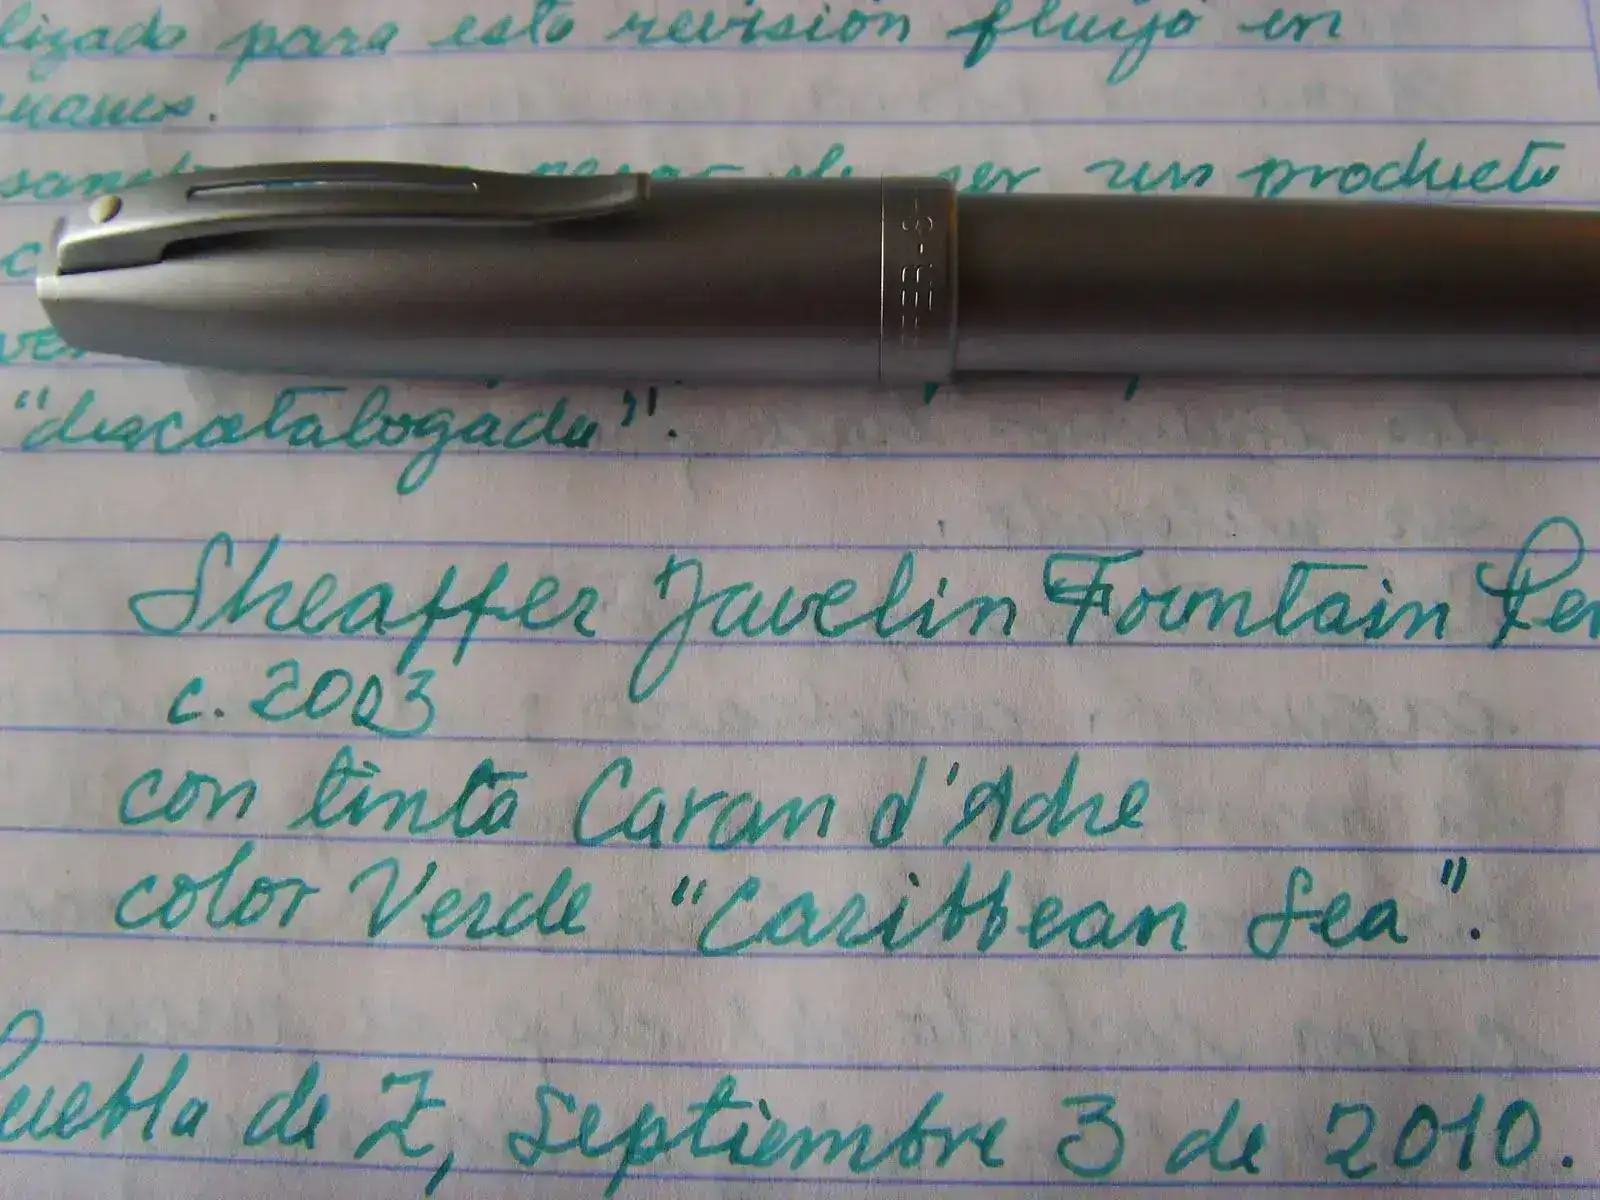 lizado para esta revisión fluyó en
ser un producto
"descatalogado".
Sheaffer Javelin Fountain Pen
c. 2003
con tinta Caran d'Ache
color Verde "Caribbean Sea".
Puebla de Z, Septiembre 3 de 2010.